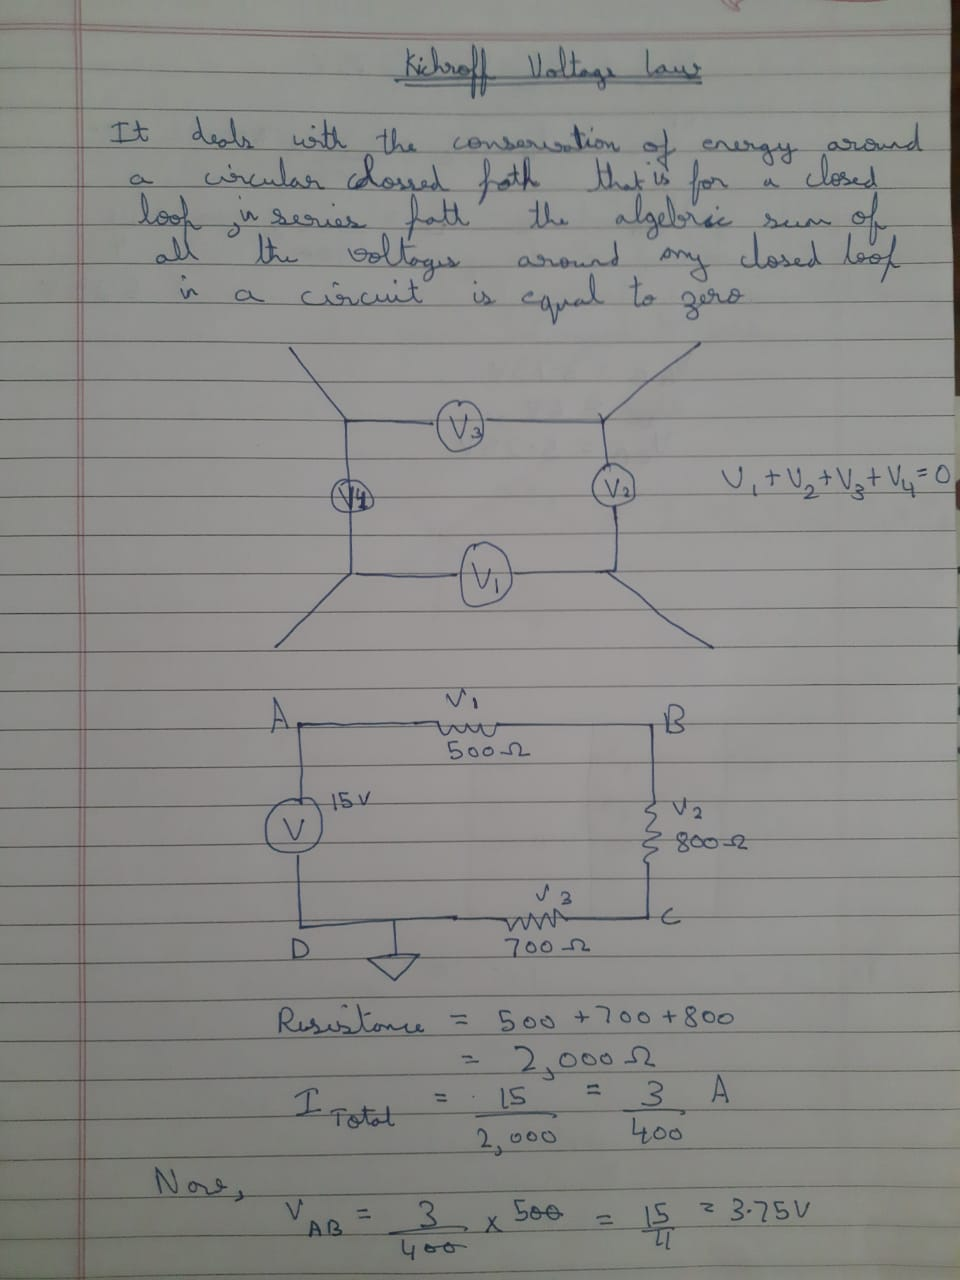 Kichroff Voltage law
It deals with the conservation of energy around
a circular clossed path that is for a closed
loop in series path the algebric sum of
all the voltages around any closed loop
in a circuit is equal to zero
V3
V4
V2
V1
V1+V2+V3+V4=0
A
V1
500Ω
B
15V
V
V2
800Ω
V3
700Ω
C
D
Resistance = 500 +700+800
= 2,000Ω
I Total = 15/2,000 = 3/400 A
Now,
VAB = 3/400 x 500 = 15/4 = 3.75V